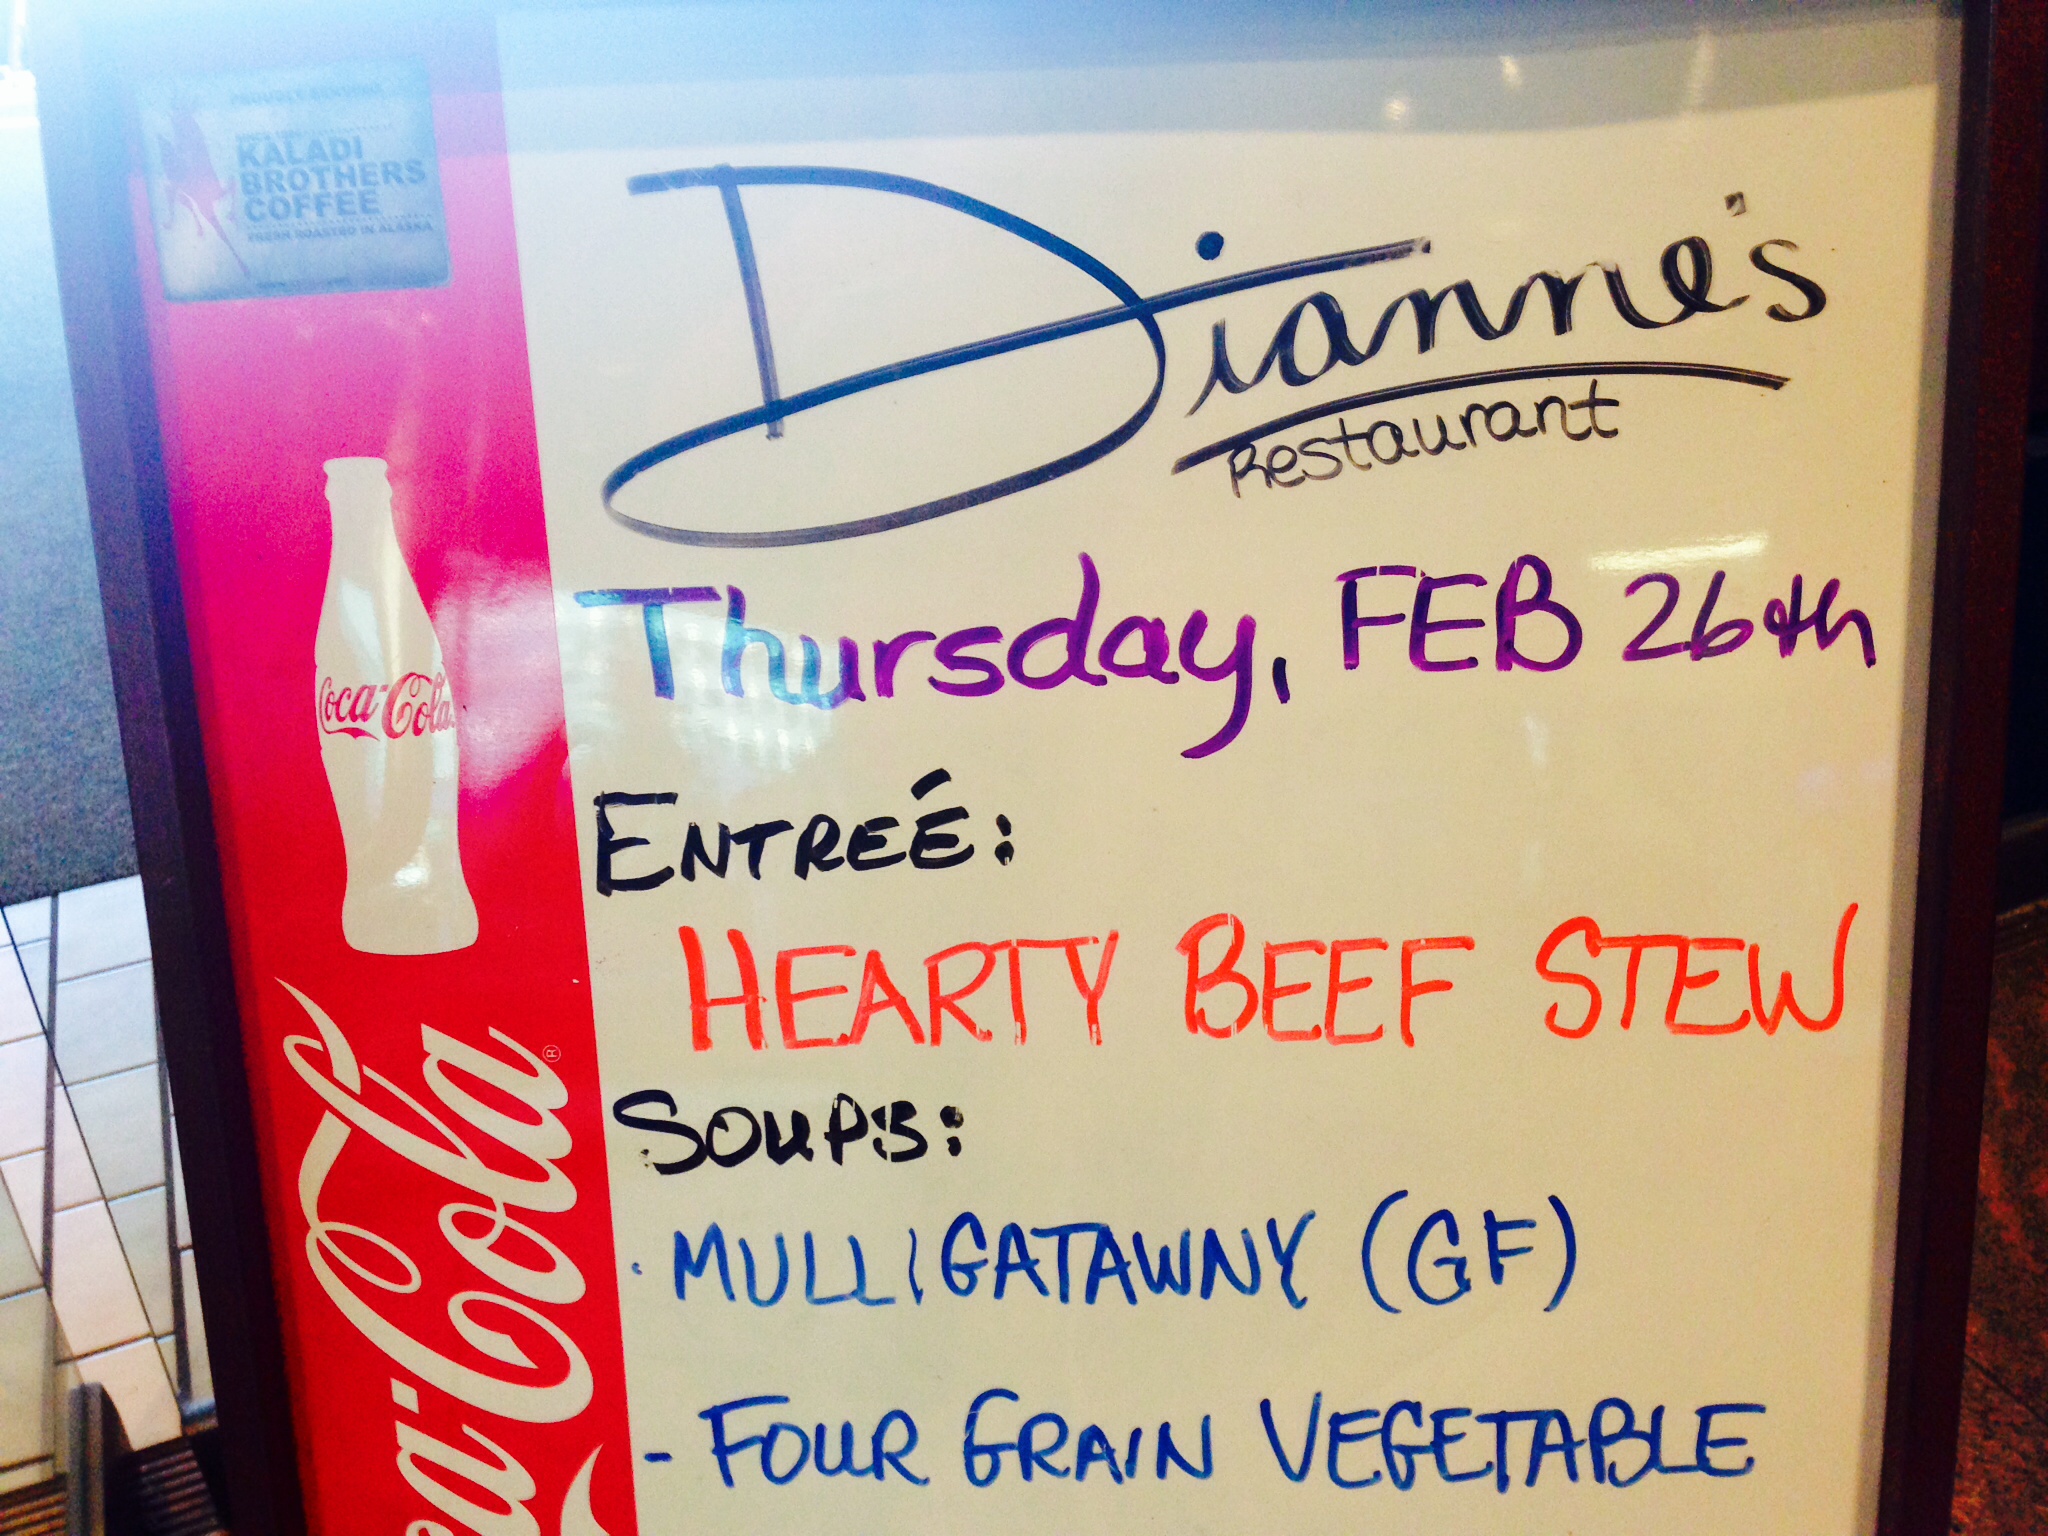 PROUDLY SERVING
KALADI
BROTHERS
COFFEE
FRESH ROASTED IN ALASKA
Dianne's
Restaurant
Thursday, FEB 26th
ENTREÉ:
HEARTY BEEF STEW
SOUPS:
· MULLIGATAWNY (GF)
- FOUR GRAIN VEGETABLE
Coca-Cola
Coca-Cola®